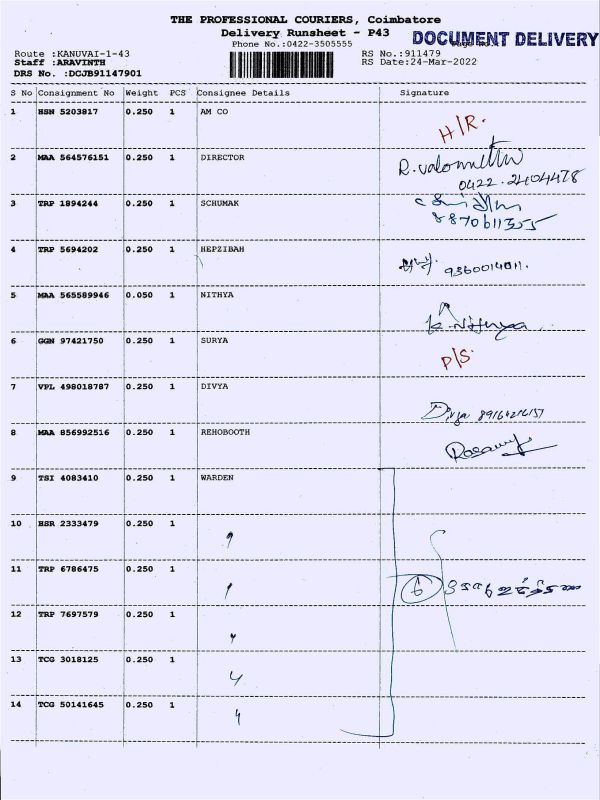 THE PROFESSIONAL COURIERS, Coimbatore
Delivery Runsheet - P43
DOCUMENT DELIVERY
Phone No.:0422-3505555
Route :KANUVAI-1-43
RS No.:911479
Staff :ARAVINTH
RS Date:24-Mar-2022
DRS No. :DCJB91147901
S No Consignment No Weight PCS Consignee Details Signature
1 HSN 5203817 0.250 1 AM CO H/R.
2 MAA 564576151 0.250 1 DIRECTOR
0422.2404478
3 TRP 1894244 0.250 1 SCHUMAK
8870611355
4 TRP 5694202 0.250 1 HEPZIBAH 9360014011.
5 MAA 565589946 0.050 1 NITHYA K.Nithya
6 GGN 97421750 0.250 1 SURYA P/S.
7 VPL 498018787 0.250 1 DIVYA Divya
8 MAA 856992516 0.250 1 REHOBOOTH
9 TSI 4083410 0.250 1 WARDEN
10 HSR 2333479 0.250 1 "
11 TRP 6786475 0.250 1 " 6
12 TRP 7697579 0.250 1 "
13 TCG 3018125 0.250 1 "
14 TCG 50141645 0.250 1 "